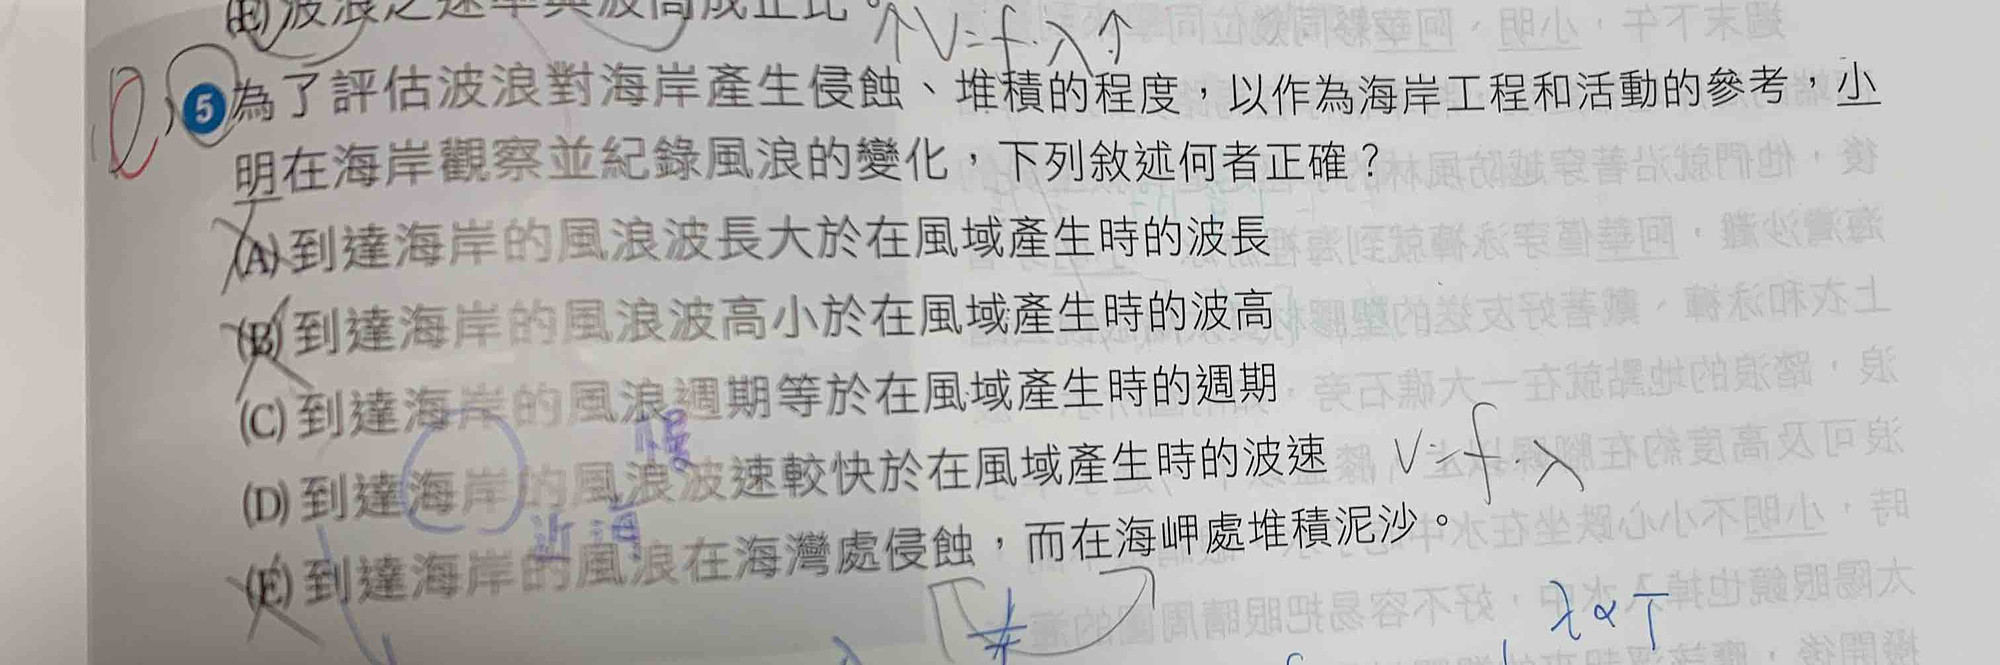 (E)波浪之速率與波高成正比。
↑V=f·λ↑
5 為了評估波浪對海岸產生侵蝕、堆積的程度，以作為海岸工程和活動的參考，小
明在海岸觀察並紀錄風浪的變化，下列敘述何者正確？
(A)到達海岸的風浪波長大於在風域產生時的波長
(B)到達海岸的風浪波高小於在風域產生時的波高
(C)到達海岸的風浪週期等於在風域產生時的週期
慢
(D)到達海岸的風浪波速較快於在風域產生時的波速 V=f·λ
近
(E)到達海岸的風浪在海灣處侵蝕，而在海岬處堆積泥沙。
λ∝T